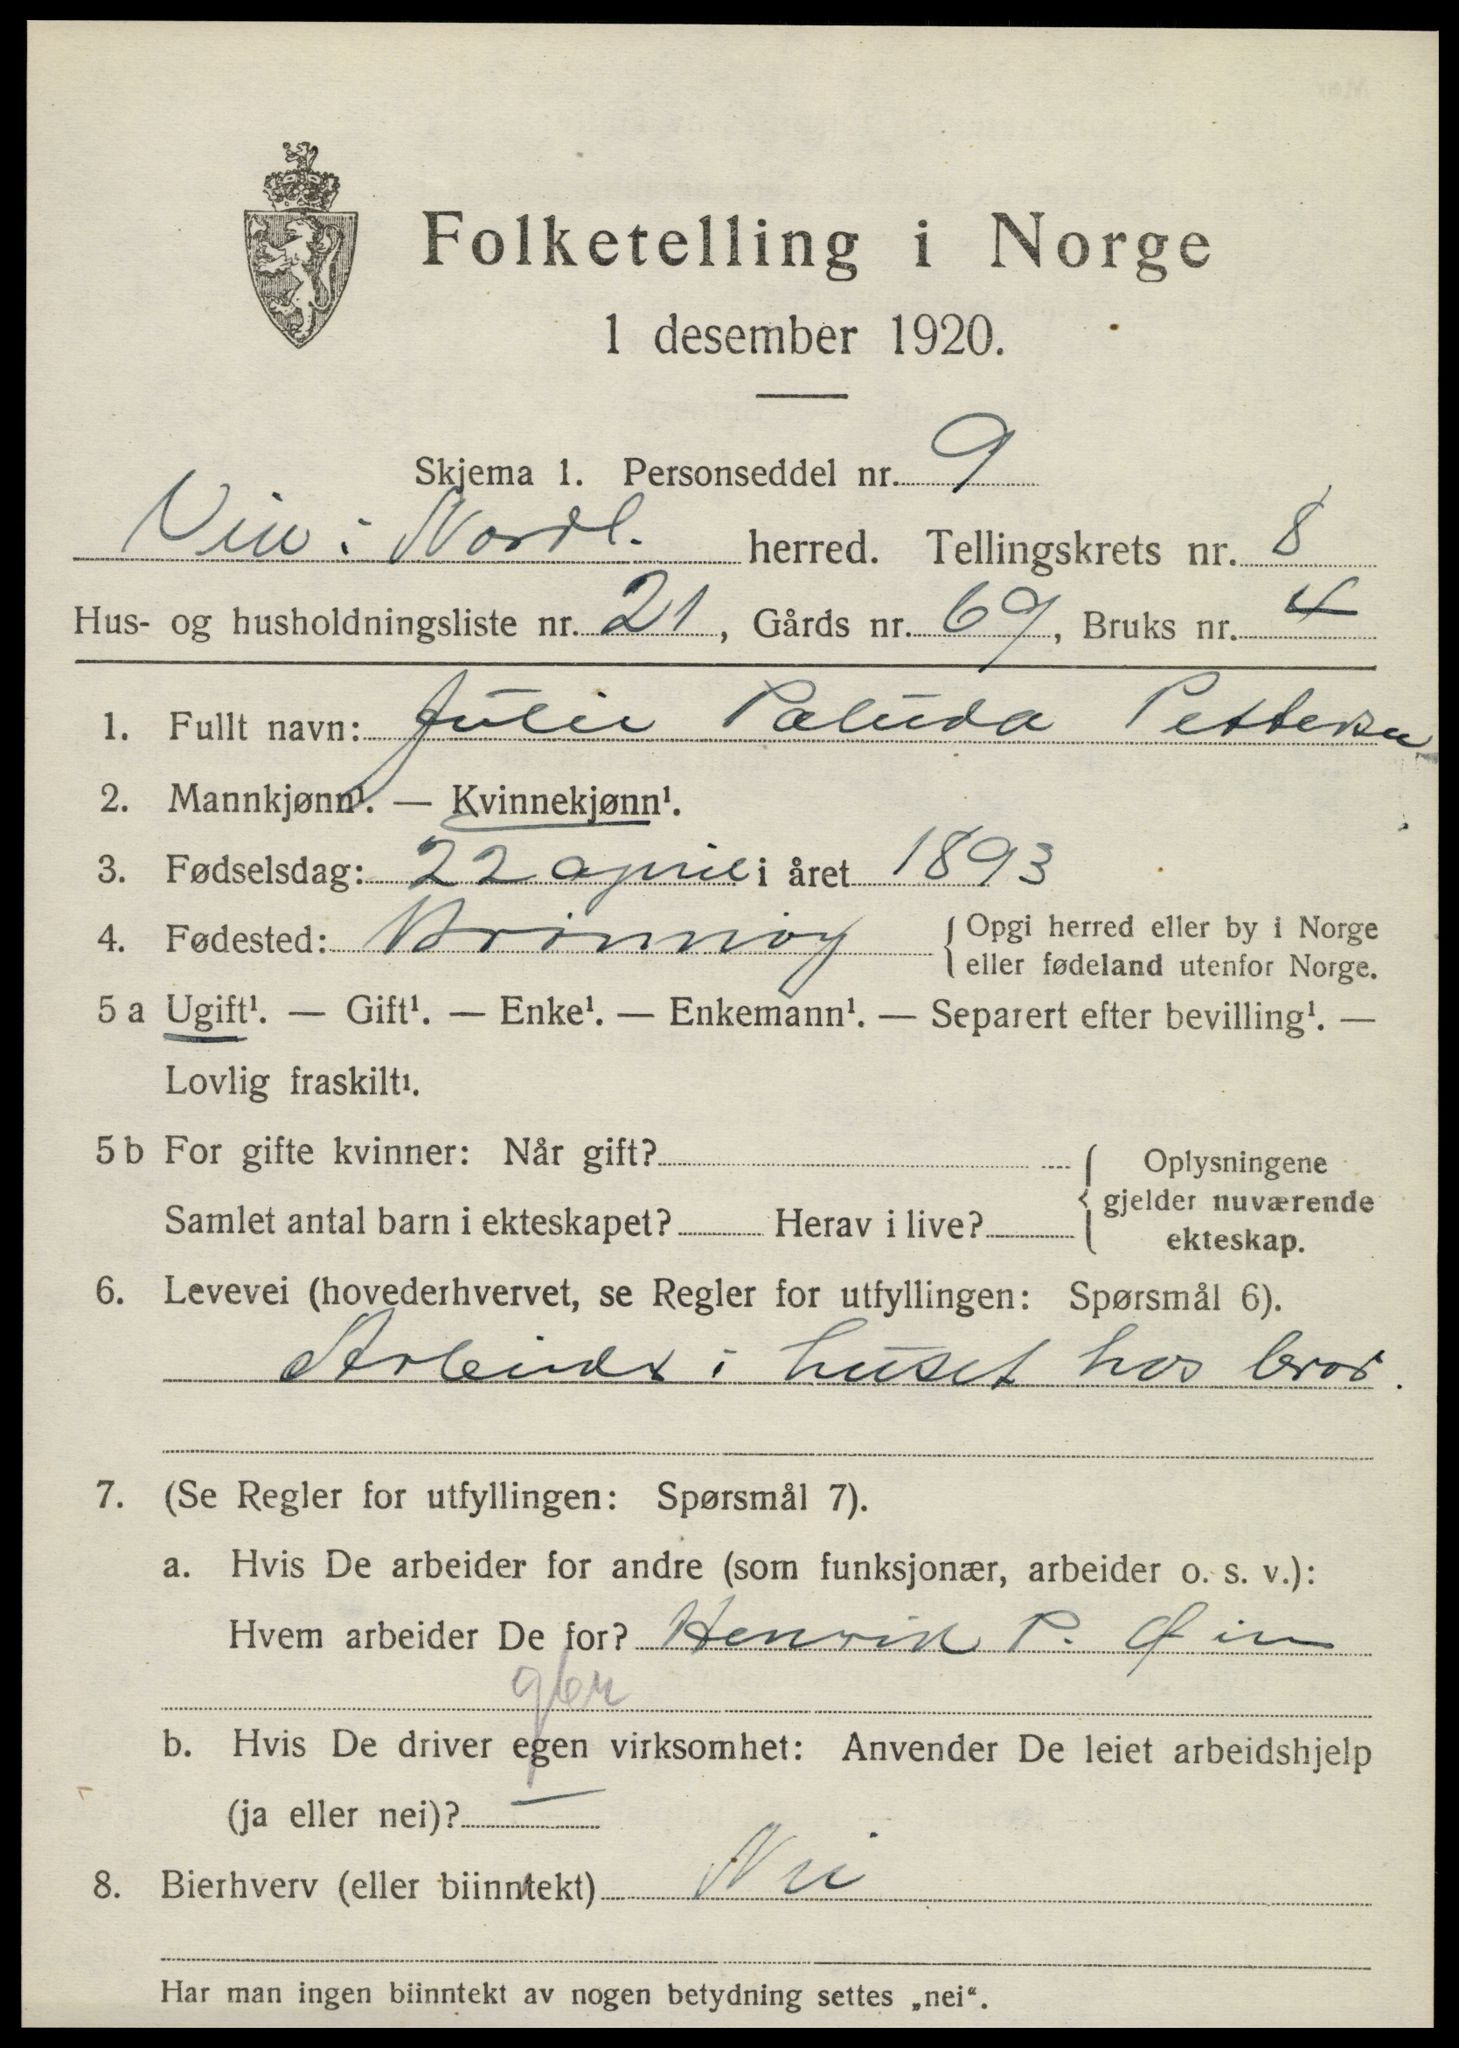 Folketelling i Norge
1 desember 1920.
Skjema 1. Personseddel nr. 9
Vik i Nordl. herred. Tellingskrets nr. 8
Hus- og husholdningsliste nr. 21, Gårds nr. 69, Bruks nr. 4
1. Fullt navn: Julie Paluda Pettersen
2. Mannkjønn¹. — Kvinnekjønn¹.
3. Fødselsdag: 22 april i året 1893
4. Fødested: Brønnøy { Opgi herred eller by i Norge
eller fødeland utenfor Norge.
5 a Ugift¹. — Gift¹. — Enke¹. — Enkemann¹. — Separert efter bevilling¹. —
Lovlig fraskilt¹.
5 b For gifte kvinner: Når gift? { Oplysningene
gjelder nuværende
Samlet antal barn i ekteskapet? Herav i live? ekteskap.
6. Levevei (hovederhvervet, se Regler for utfyllingen: Spørsmål 6).
Arbeider i huset hos bror.
7. (Se Regler for utfyllingen: Spørsmål 7).
a. Hvis De arbeider for andre (som funksjonær, arbeider o. s. v.):
Hvem arbeider De for? Henrik P.
b. Hvis De driver egen virksomhet: Anvender De leiet arbeidshjelp
(ja eller nei)? —
8. Bierhverv (eller biinntekt) Nei
Har man ingen biinntekt av nogen betydning settes „nei“.